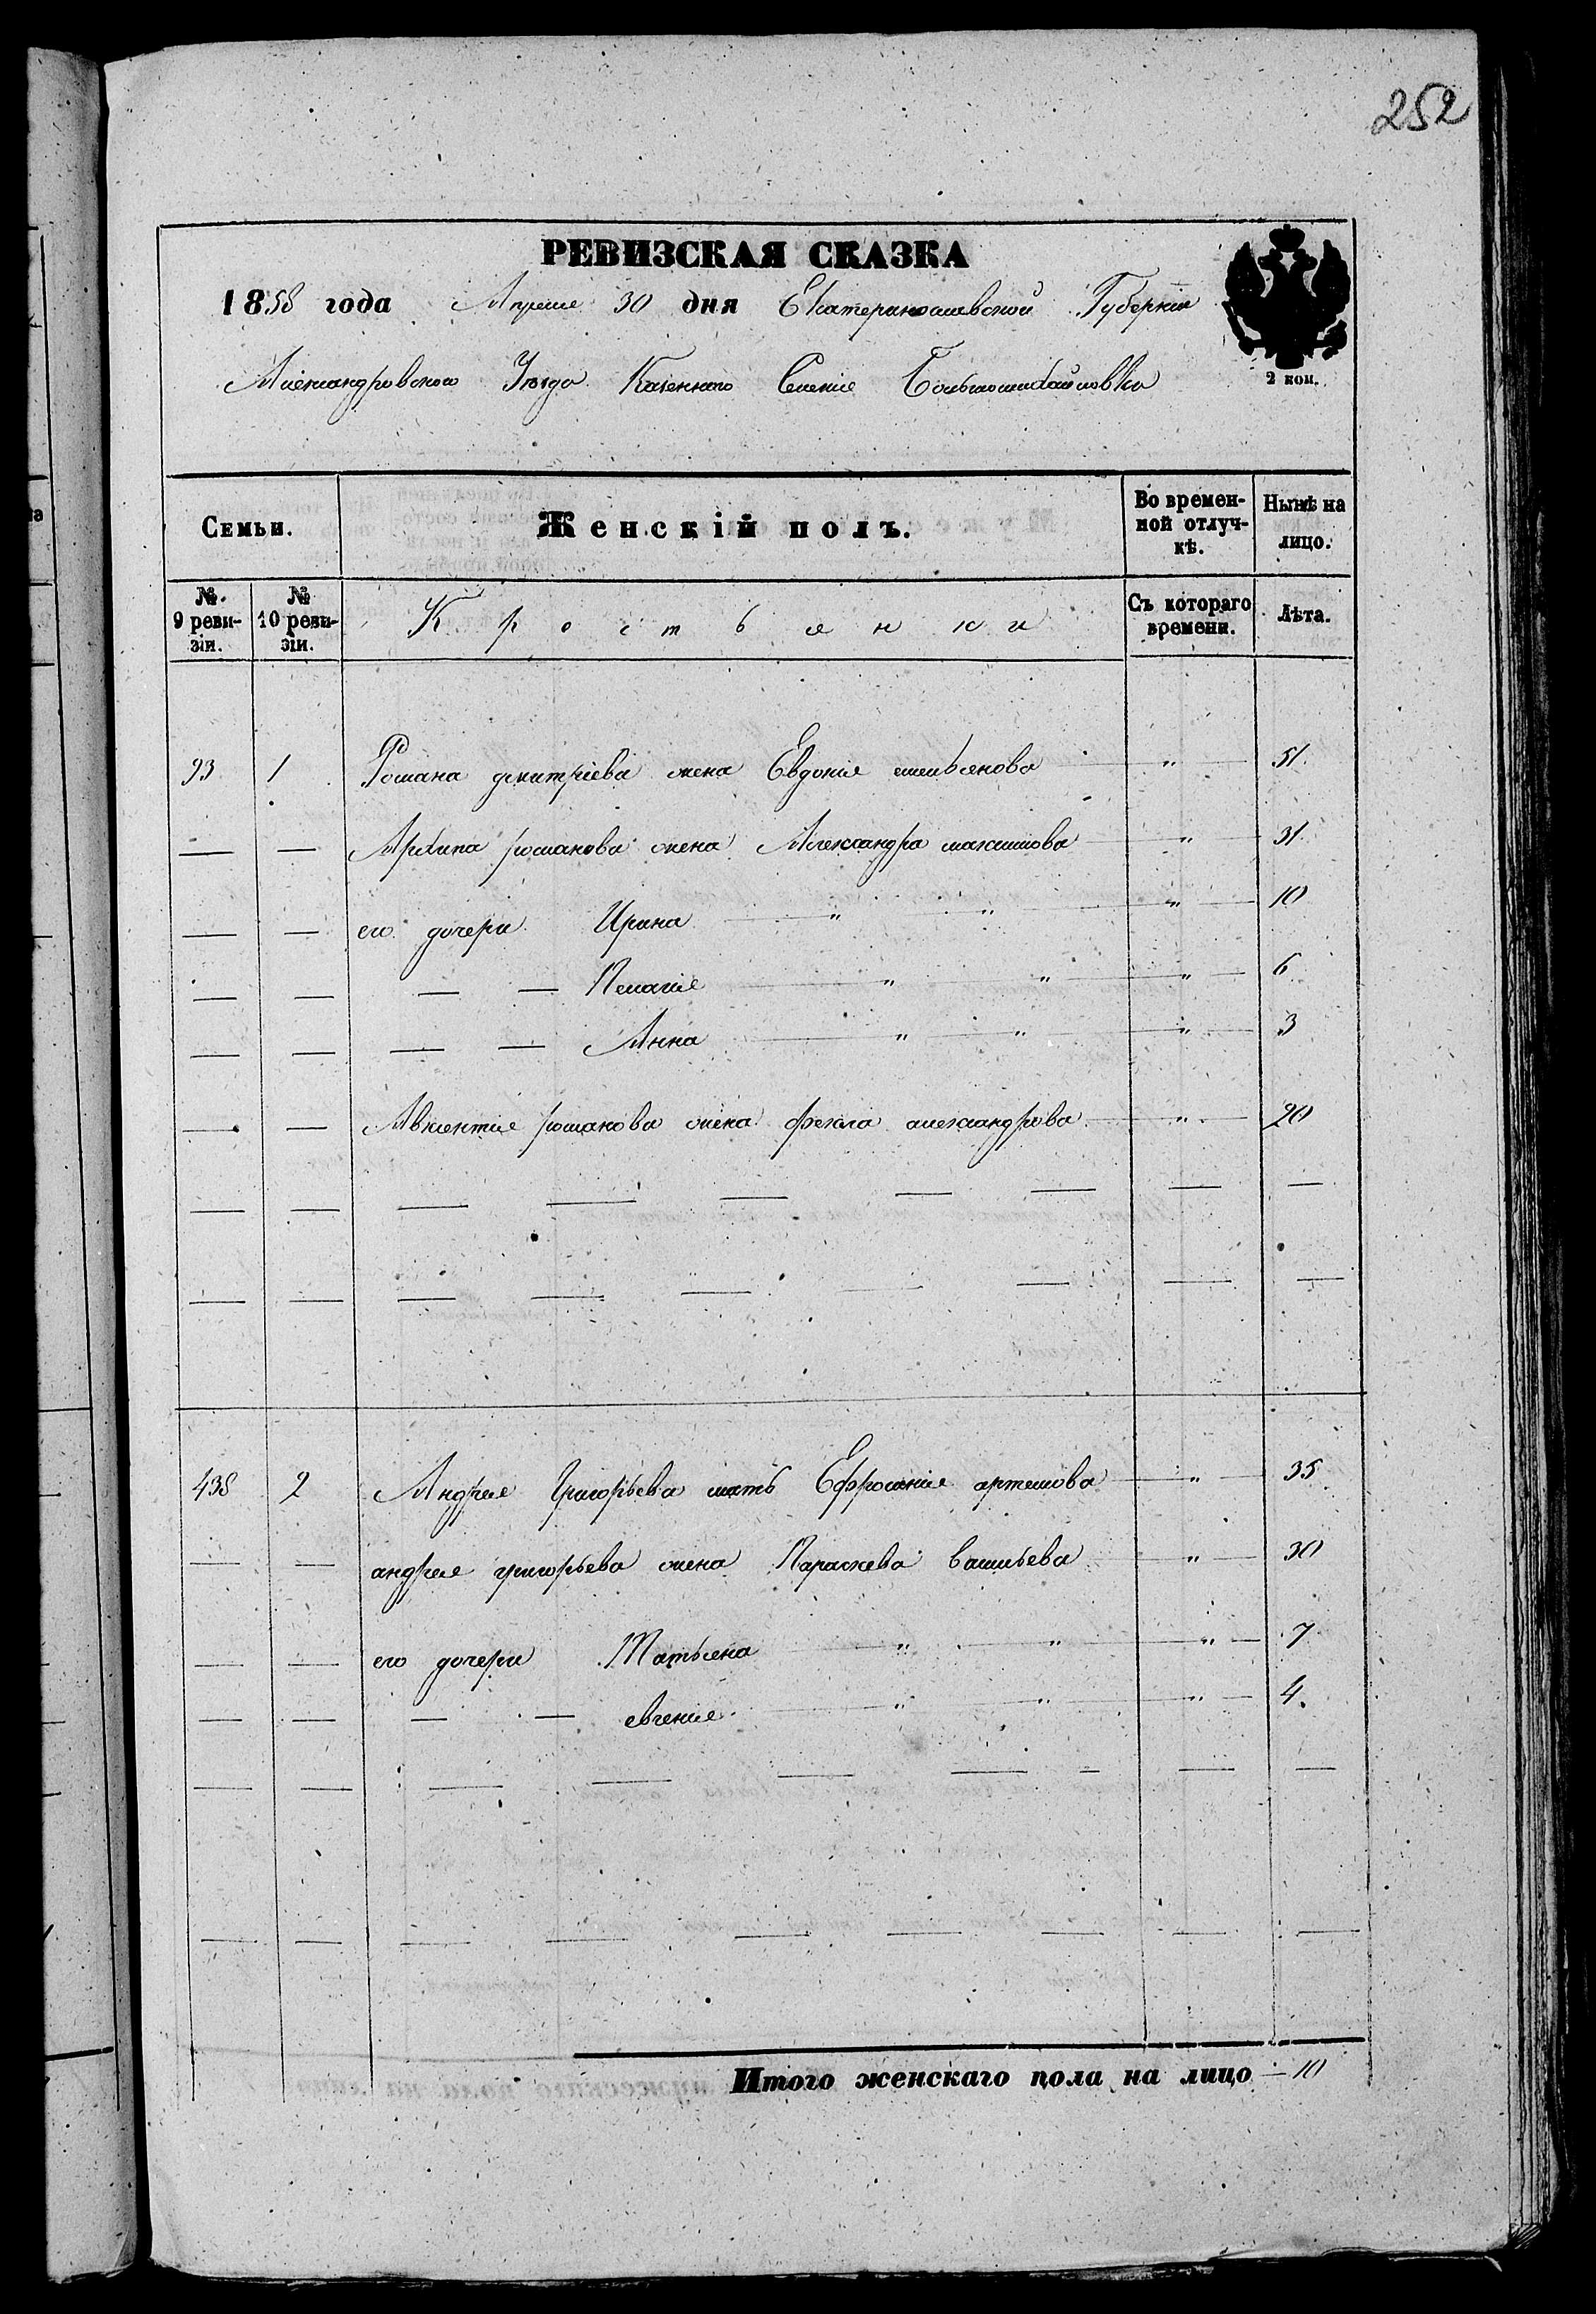 252
РЕВИЗСКАЯ СКАЗКА
1858 года Апреля 30 дня Екатеринославской Губернии
Александровского Уезда Казенного Селения Большомихайловки
2 коп.
Семьи. Женскій полъ. Во времен-ной отлуч-кѣ. Нынѣ на лицо.
№ 9 реви-зіи. № 10 реви-зіи. Крестьянки Съ котораго времени. Лѣта.
93 1 Романа дмитріева жена Евдокия емельянова " 51
— — Архипа романова жена Александра максимова " 31
— — его дочери Ирина " " " 10
— — — — Пелагия " " " 6
— — — — Анна " " " 3
— — Авксентия романова жена фекла александрова " 20
438 2 Андрея Григорьева мать Ефросиния артемова " 35
— — андрея григорьева жена Параскева васильева " 30
— — его дочери Татьяна " " " 7
— — — — евгения " " " 4
Итого женскаго пола на лицо — 10